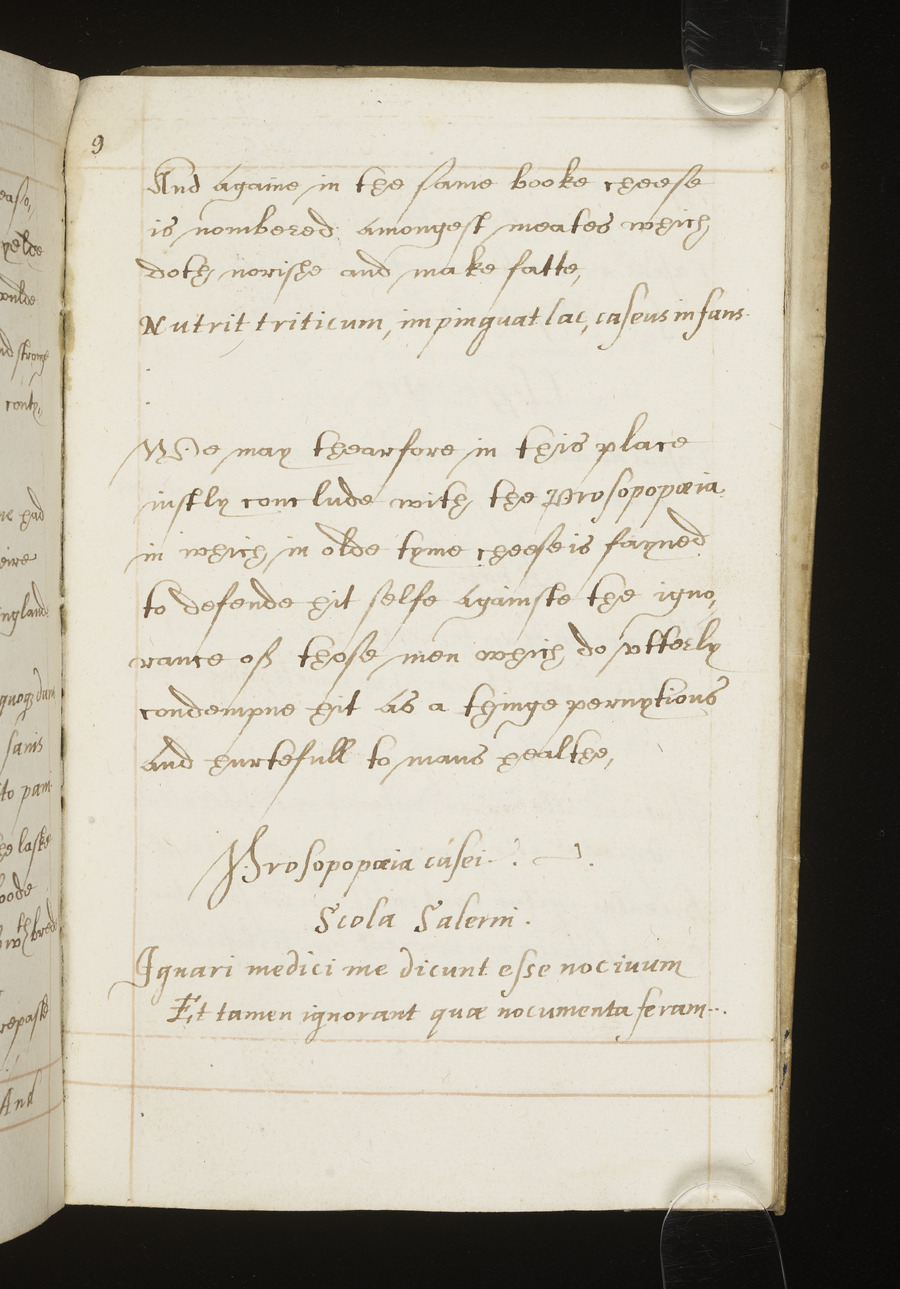 9
And againe in the same booke cheese
is nombered amongest meates which
doth norishe and make fatte,
Nutrit, triticum, impinguat lac, caseus infans.
We may thearfore in this place
iustly conclude with the Prosopopœia
in which in olde tyme cheese is fayned
to defende hit selfe againste the igno,
rance off those men which do vtterly
condempne hit as a thinge pernytious
and hurtefull to mans healthe,
Prosopopœia cásei
Scola Salerni.
Ignari medici me dicunt esse nociuum
Et tamen ignorant quæ nocumenta feram
pelde
nd strong
conty,
ne had
eire
ingland
quoq dum
sanis
to pani
he laske
oode
wth bred
repaste
And